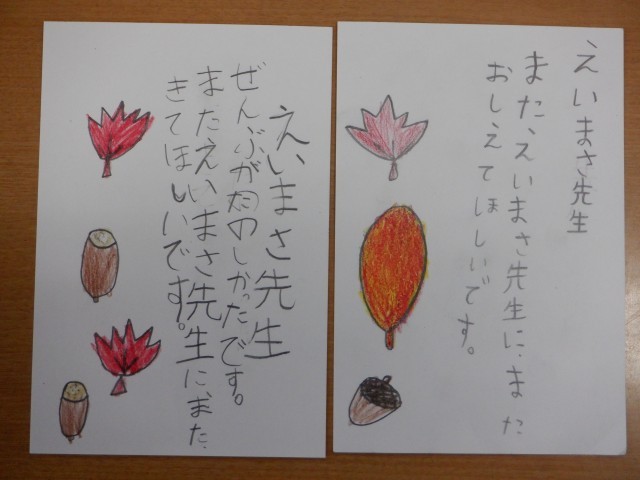 えいまさ先生
また、えいまさ先生に、また
おしえてほしいです。
えいまさ先生
ぜんぶがたのしかったです。
またえいまさ先生に、また、
きてほしいです。